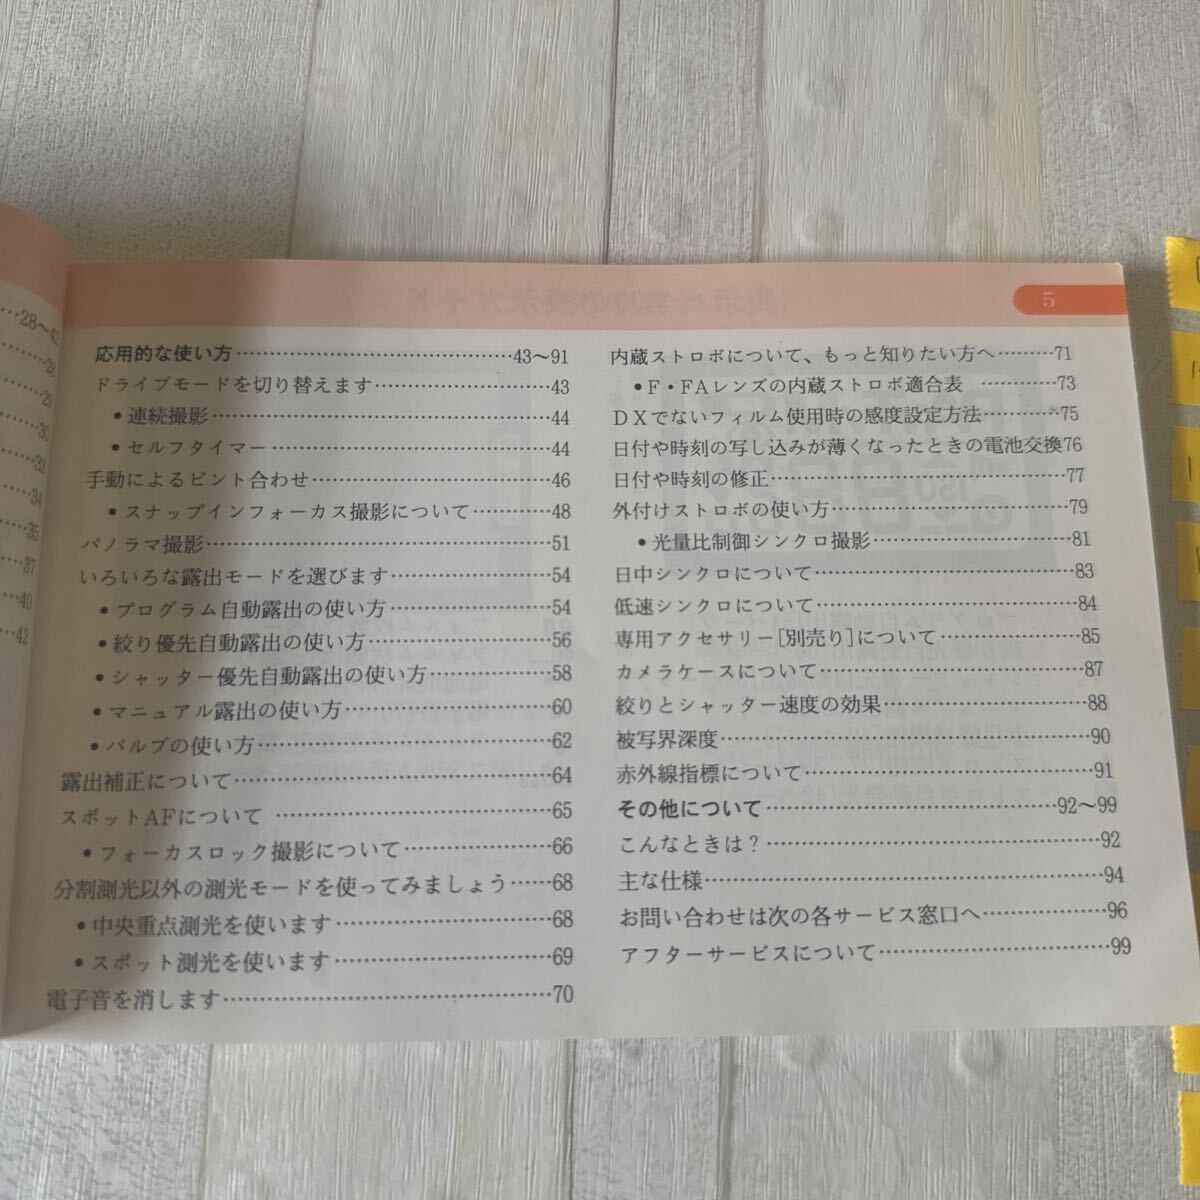 28〜42
28
29
30
33
34
35
37
40
42
5
応用的な使い方……43〜91
ドライブモードを切り替えます……43
•連続撮影……44
•セルフタイマー……44
手動によるピント合わせ……46
•スナップインフォーカス撮影について……48
パノラマ撮影……51
いろいろな露出モードを選びます……54
•プログラム自動露出の使い方……54
•絞り優先自動露出の使い方……56
•シャッター優先自動露出の使い方……58
•マニュアル露出の使い方……60
•バルブの使い方……62
露出補正について……64
スポットAFについて……65
•フォーカスロック撮影について……66
分割測光以外の測光モードを使ってみましょう……68
•中央重点測光を使います……68
•スポット測光を使います……69
電子音を消します……70
内蔵ストロボについて、もっと知りたい方へ……71
•F・FAレンズの内蔵ストロボ適合表……73
DXでないフィルム使用時の感度設定方法……75
日付や時刻の写し込みが薄くなったときの電池交換76
日付や時刻の修正……77
外付けストロボの使い方……79
•光量比制御シンクロ撮影……81
日中シンクロについて……83
低速シンクロについて……84
専用アクセサリー[別売り]について……85
カメラケースについて……87
絞りとシャッター速度の効果……88
被写界深度……90
赤外線指標について……91
その他について……92〜99
こんなときは？……92
主な仕様……94
お問い合わせは次の各サービス窓口へ……96
アフターサービスについて……99